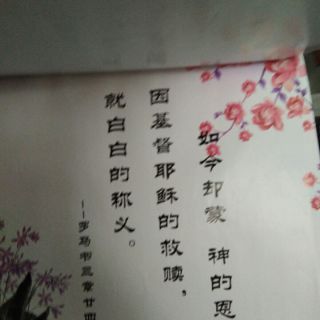 如今却蒙 神的恩
因基督耶稣的救赎，
就白白的称义。
--罗马书三章廿四